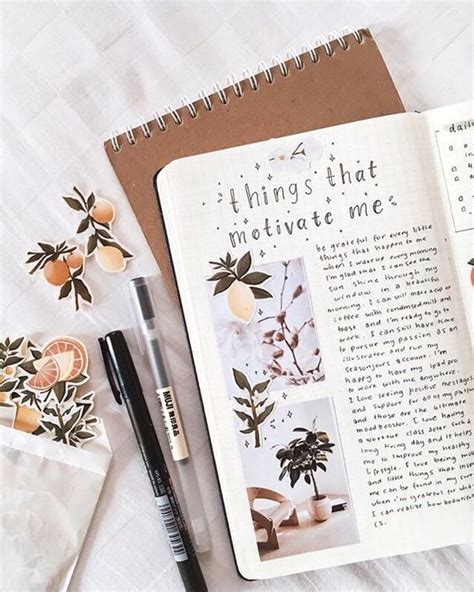 things that
motivate me
be grateful for every little
things that happen to me
when I wake up every morning
I'm glad that I can see the
sun shine through my
window in a beautiful
morning. I can still make a cup of
coffee with condensed milk and
toast and I'm ready to go
to work. I can still have time
to pursue my passion as an
illustrator and run my
seasonyours account. I'm
happy to have my ipad pro
to work with me anywhere.
I love seeing positive message
and support for all of my platform
and those are the ultimate
moodbooster. I love having
a workout after such
long tiring day and it helps
me to improve my healthy
lifestyle. I love being
and little things that
me can be found in my
when I'm grateful for what
I can realize how beautiful
is.
daily
MUJI